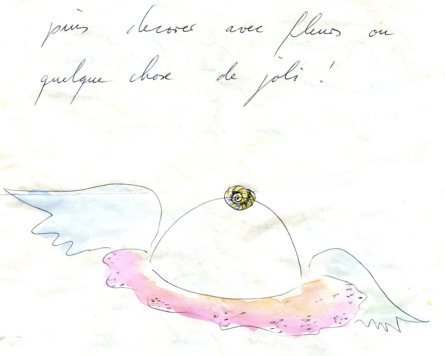 puis decorer avec fleurs ou
quelque chose de joli !